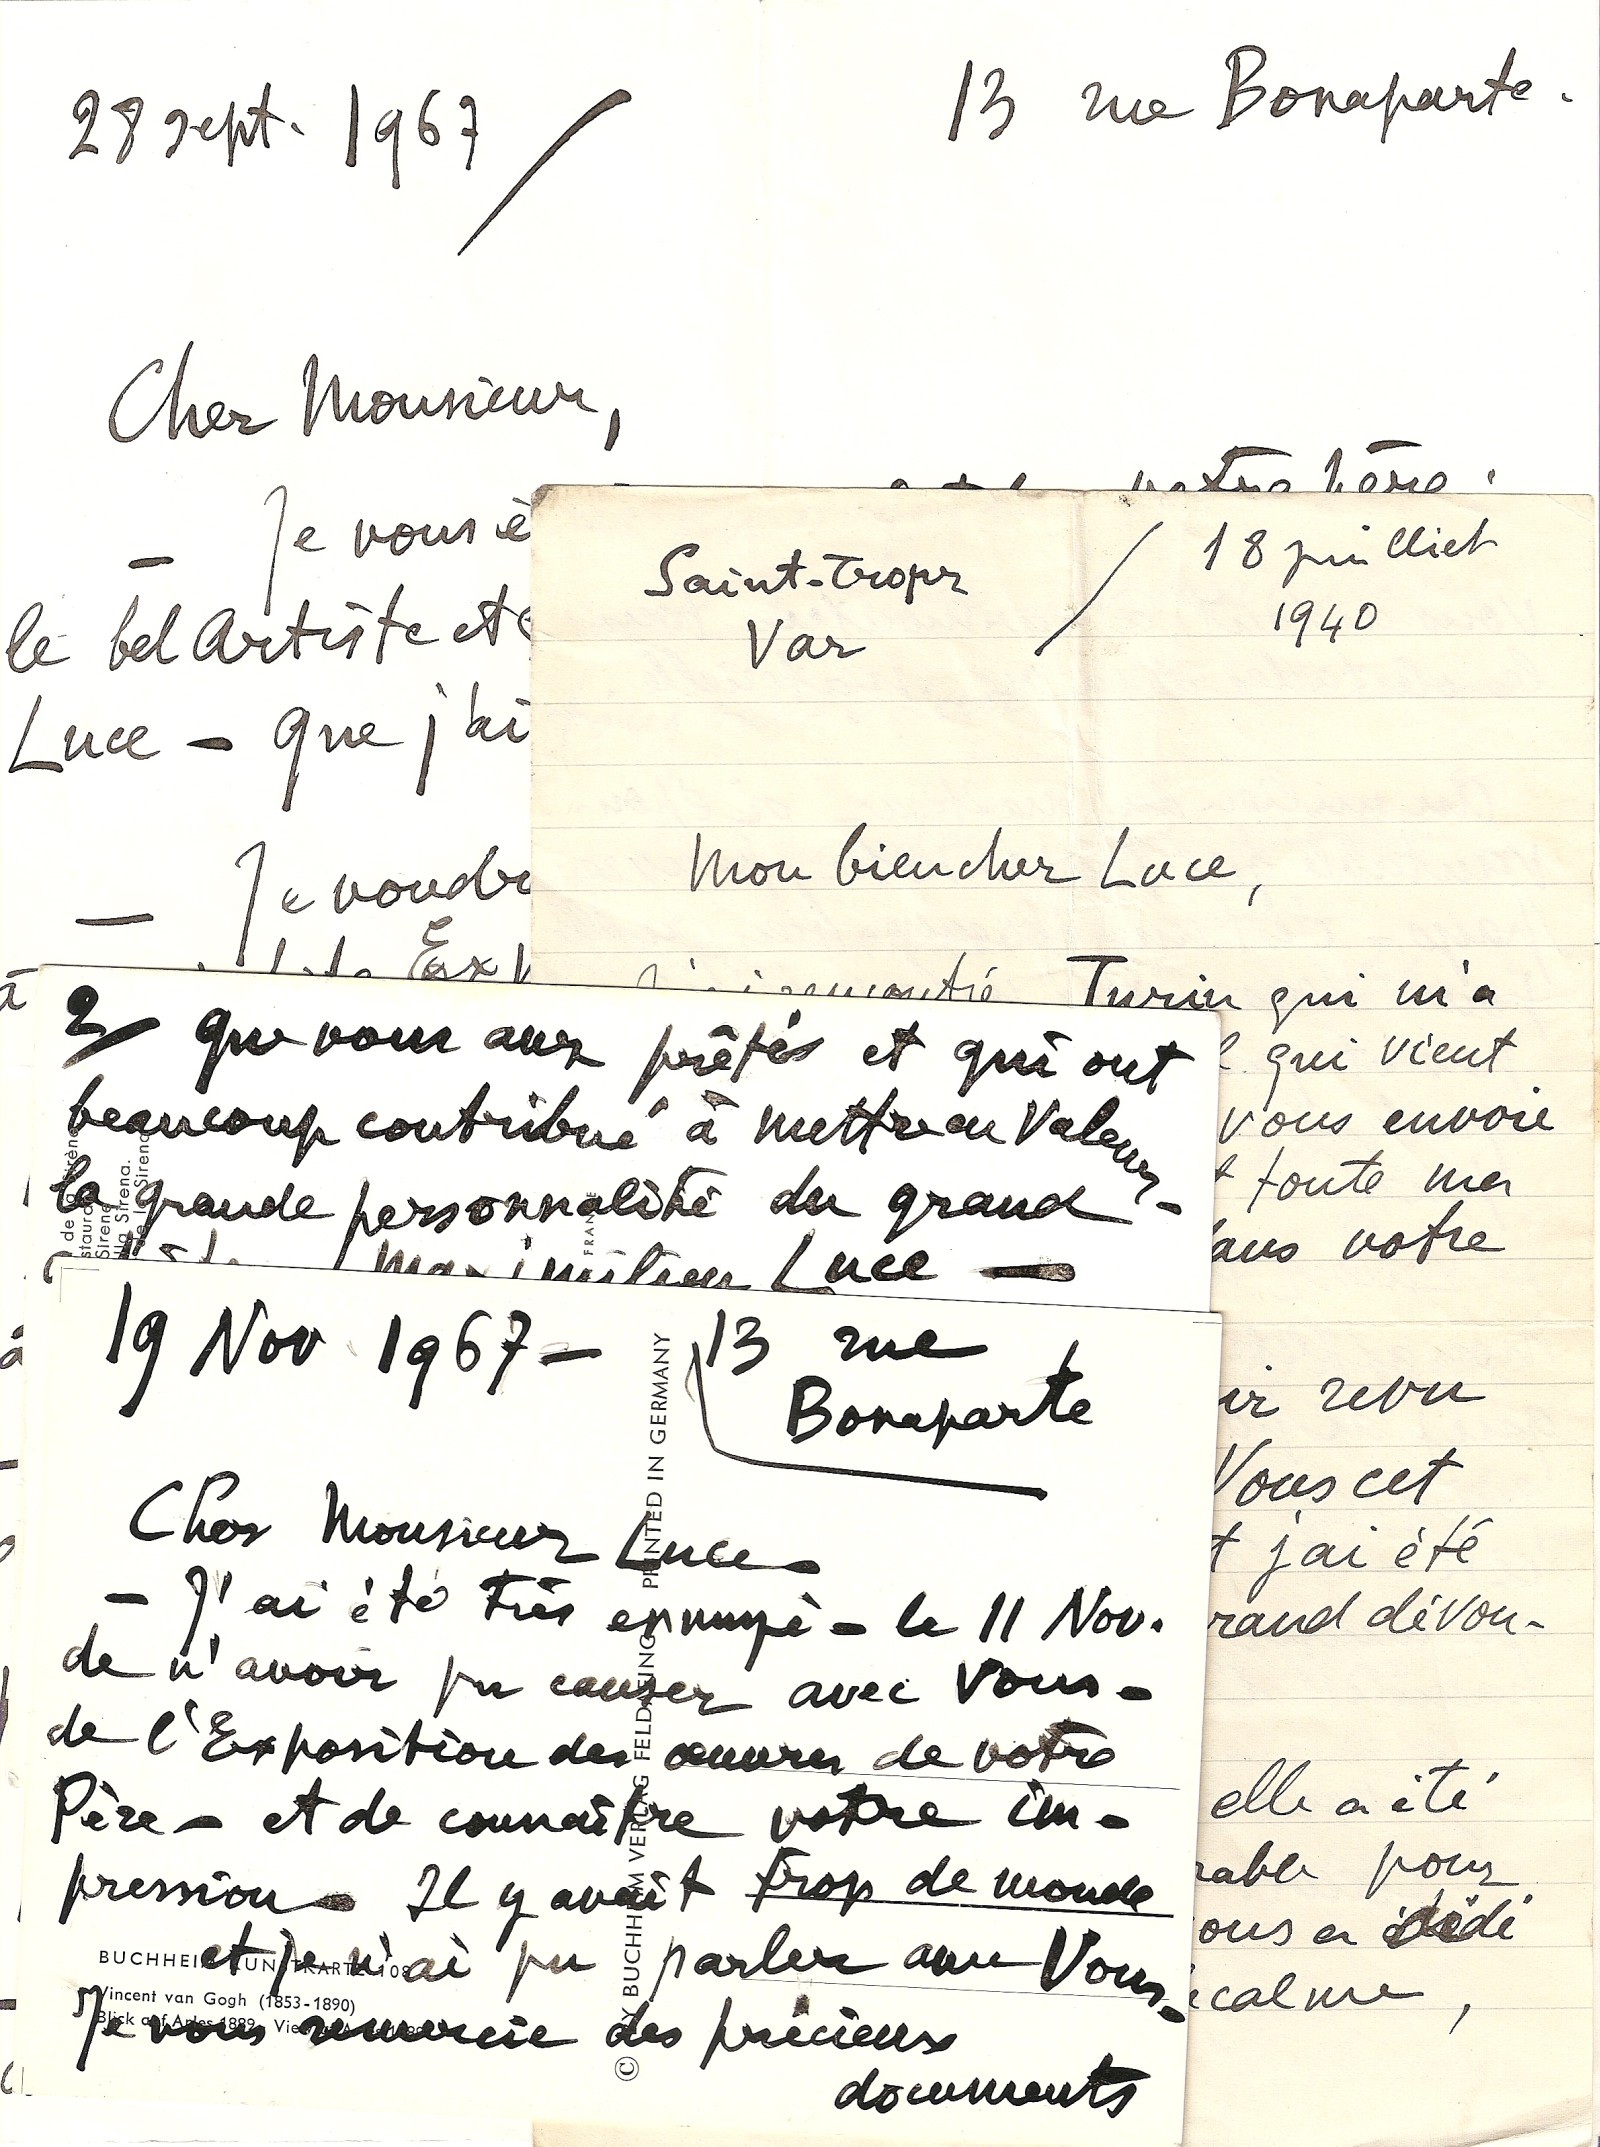 28 sept. 1967
13 rue Bonaparte.
Cher Monsieur,
votre père.
— Je vous é
le bel Artiste et
Luce — que j'ai
— Je voudr
à
Saint-Tropez
Var
18 juillet
1940
Mon bien cher Luce,
J'ai rencontré Turin qui m'a
qui vient
vous envoie
toute ma
dans votre
revu
Vous cet
j'ai été
grand dévou-
elle a été
pour
calme,
2/ que vous avez prêtés et qui ont
beaucoup contribué à mettre en Valeur
la grande personnalité du grand
Maximilien Luce —
FRANCE
Sirena.
19 Nov 1967 —
13 rue
Bonaparte
Cher Monsieur Luce —
— J'ai été très ennuyé — le 11 Nov.
de n'avoir pu causer avec Vous —
de l'Exposition des œuvres de votre
Père — et de connaître votre im-
pression — Il y avait trop de monde
et je n'ai pu parler avec Vous —
Je vous remercie des précieux
documents
BUCHHEIM KUNSTKARTE 108
Vincent van Gogh (1853-1890)
Blick auf Arles 1889
© BY BUCHHEIM VERLAG FELDAFING PRINTED IN GERMANY